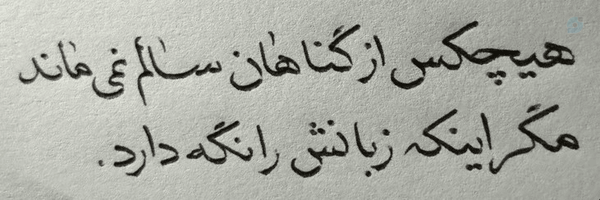 هیچکس از گناهان سالم نمی ماند
مگر اینکه زبانش را نگه دارد.